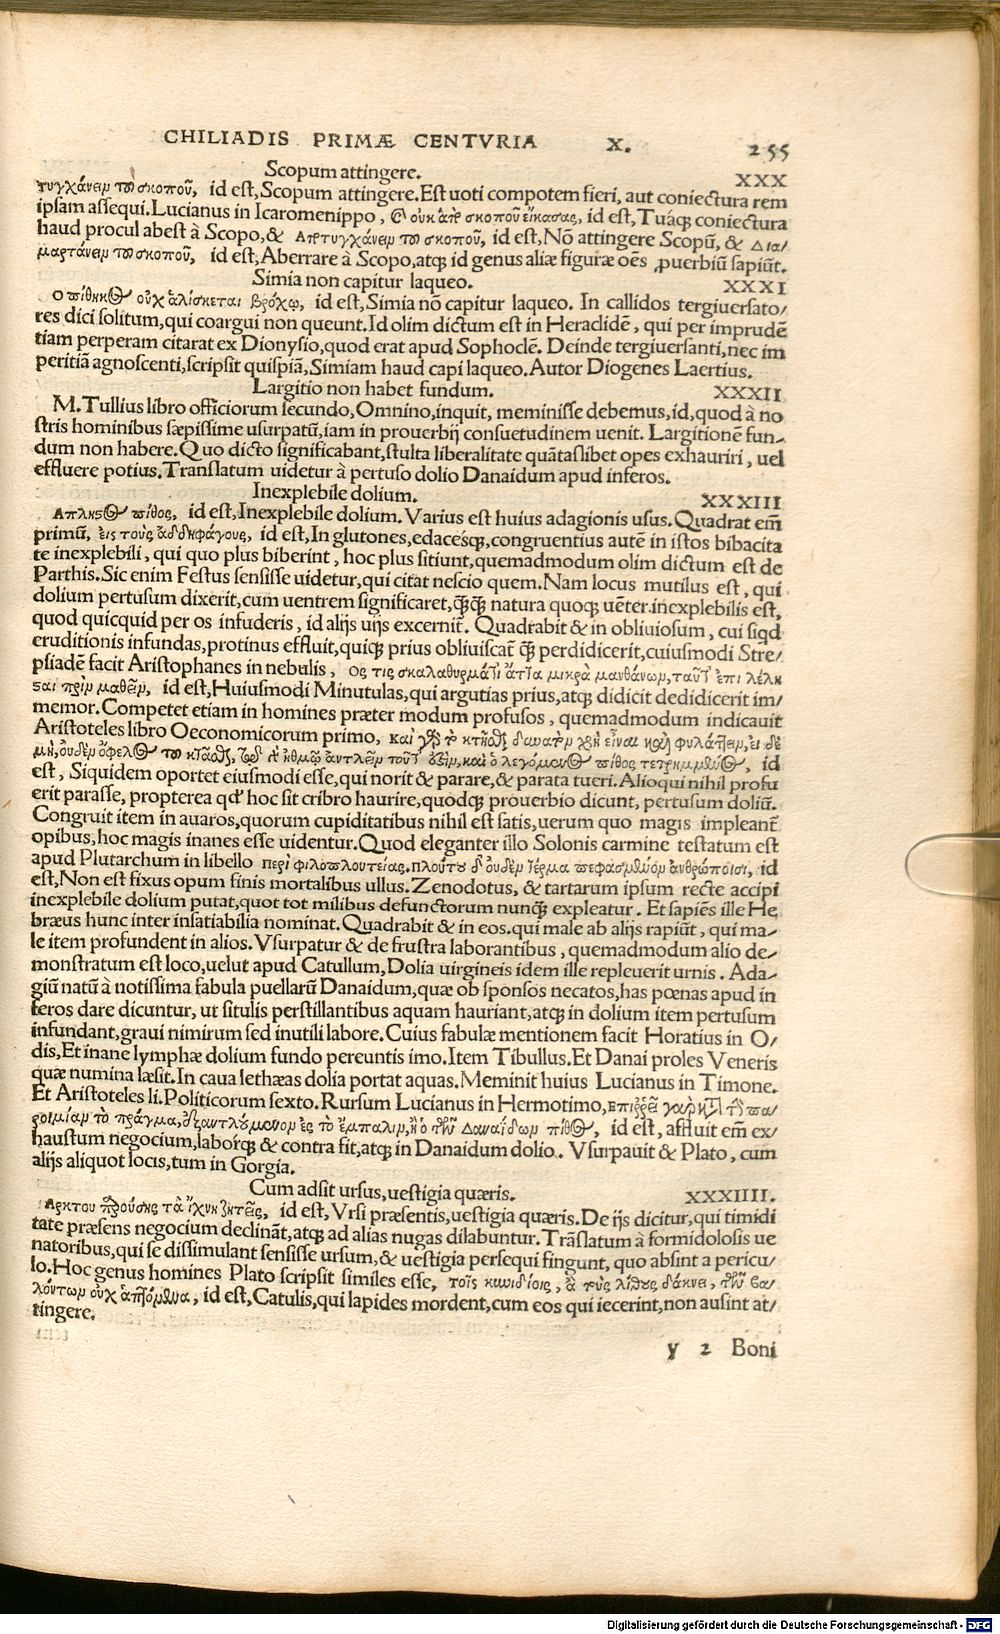 CHILIADIS PRIMÆ CENTVRIA X. 255
Scopum attingere. XXX
τυγχάνειν τοῦ σκοποῦ, id est, Scopum attingere. Est uoti compotem fieri, aut coniectura rem
ipsam assequi. Lucianus in Icaromenippo, οὐκ ἀπὸ σκοποῦ εἴκασας, id est, Tuáq; coniectura
haud procul abest à Scopo, & Αποτυγχάνειν τοῦ σκοποῦ, id est, Nõ attingere Scopũ, & Δια/
μαρτάνειν τοῦ σκοποῦ, id est, Aberrare à Scopo, atq; id genus aliæ figuræ oẽs ꝓuerbiũ sapiũt.
Simia non capitur laqueo. XXXI
Ο πίθηκος οὐχ ἁλίσκεται βρόχῳ, id est, Simia nõ capitur laqueo. In callidos tergiuersato/
res dici solitum, qui coargui non queunt. Id olim dictum est in Heraclidẽ, qui per imprudẽ
tiam perperam citarat ex Dionysio, quod erat apud Sophoclẽ. Deinde tergiuersanti, nec im
peritiã agnoscenti, scripsit quispiã, Simiam haud capi laqueo. Autor Diogenes Laertius.
Largitio non habet fundum. XXXII
M. Tullius libro officiorum secundo, Omnino, inquit, meminisse debemus, id, quod à no
stris hominibus sæpissime usurpatũ, iam in prouerbij consuetudinem uenit. Largitionẽ fun-
dum non habere. Quo dicto significabant, stulta liberalitate quãtaslibet opes exhauriri, uel
effluere potius. Translatum uidetur à pertuso dolio Danaidum apud inferos.
Inexplebile dolium. XXXIII
Απληστος πίθος, id est, Inexplebile dolium. Varius est huius adagionis usus. Quadrat em̃
primũ, εἰς τοὺς ἀδδηφάγους, id est, In glutones, edacesq́;, congruentius autẽ in istos bibacita
te inexplebili, qui quo plus biberint, hoc plus sitiunt, quemadmodum olim dictum est de
Parthis. Sic enim Festus sensisse uidetur, qui citat nescio quem. Nam locus mutilus est, qui
dolium pertusum dixerit, cum uentrem significaret, q̃q̃ natura quoq; uẽter inexplebilis est,
quod quicquid per os infuderis, id alijs uijs excernit̃. Quadrabit & in obliuiosum, cui siqd
eruditionis infundas, protinus effluit, quicq; prius obliuiscat̃ q̃ perdidicerit, cuiusmodi Stre/
psiadẽ facit Aristophanes in nebulis, ος τις σκαλαθυρμάτι᾽ ἄττα μικρὰ μανθάνων, ταῦτ᾽ ἐπιλέλη
σαι πρὶν μαθεῖν, id est, Huiusmodi Minutulas, qui argutias prius, atq; didicit dedidicerit im/
memor. Competet etiam in homines præter modum profusos, quemadmodum indicauit
Aristoteles libro Oeconomicorum primo, καὶ γὰρ τὸ κτήσασθαι δυνατὸν χρὴ εἶναι καὶ φυλάττειν, εἰ δὲ
μὴ, οὐδὲν ὄφελος τοῦ κτᾶσθαι, τῷ ἠθμῷ ἀντλεῖν τοῦτ᾽ ἐστιν, καὶ ὁ λεγόμενος πίθος τετρημμένος, id
est, Siquidem oportet eiusmodi esse, qui norit & parare, & parata tueri. Alioqui nihil profu
erit parasse, propterea qd̃ hoc sit cribro haurire, quodq; prouerbio dicunt, pertusum doliũ.
Congruit item in auaros, quorum cupiditatibus nihil est satis, uerum quo magis impleant̃
opibus, hoc magis inanes esse uidentur. Quod eleganter illo Solonis carmine testatum est
apud Plutarchum in libello περὶ φιλοπλουτείας, πλούτου δ᾽ οὐδὲν τέρμα πεφασμένον ἀνθρώποισι, id
est, Non est fixus opum finis mortalibus ullus. Zenodotus, & tartarum ipsum recte accipi
inexplebile dolium putat, quot tot milibus defunctorum nunq̃ expleatur. Et sapiẽs ille He
bræus hunc inter insatiabilia nominat. Quadrabit & in eos, qui male ab alijs rapiũt, qui ma-
le item profundent in alios. Vsurpatur & de frustra laborantibus, quemadmodum alio de-
monstratum est loco, uelut apud Catullum, Dolia uirgineis idem ille repleuerit urnis. Ada-
giũ natũ à notissima fabula puellarũ Danaidum, quæ ob sponsos necatos, has pœnas apud in
feros dare dicuntur, ut situlis perstillantibus aquam hauriant, atq; in dolium item pertusum
infundant, graui nimirum sed inutili labore. Cuius fabulæ mentionem facit Horatius in O/
dis, Et inane lymphæ dolium fundo pereuntis imo. Item Tibullus. Et Danai proles Veneris
quæ numina læsit. In caua lethæas dolia portat aquas. Meminit huius Lucianus in Timone.
Et Aristoteles li. Politicorum sexto. Rursum Lucianus in Hermotimo, Επιρρεῖ γὰρ κατὰ τὴν πα/
ροιμίαν τὸ πρᾶγμα, ἐξαντλούμενον ἐς τὸ ἔμπαλιν, ἢ ὁ τῶν Δαναίδων πίθος, id est, affluit em̃ ex/
haustum negocium, laborq́; & contra fit, atq; in Danaidum dolio. Vsurpauit & Plato, cum
alijs aliquot locis, tum in Gorgia.
Cum adsit ursus, uestigia quæris. XXXIIII.
Αρκτου παρούσης τὰ ἴχνη ζητεῖς, id est, Vrsi præsentis, uestigia quæris. De ijs dicitur, qui timidi
tate præsens negocium declinãt, atq; ad alias nugas dilabuntur. Trãslatum à formidolosis ue
natoribus, qui se dissimulant sensisse ursum, & uestigia persequi fingunt, quo absint a pericu/
lo. Hoc genus homines Plato scripsit similes esse, τοῖς κυνιδίοις, ἃ τοὺς λίθους δάκνει, τῶν βα/
λόντων οὐχ ἁπτόμενα, id est, Catulis, qui lapides mordent, cum eos qui iecerint, non ausint at/
tingere.
y 2 Boni
Digitalisierung gefördert durch die Deutsche Forschungsgemeinschaft - DFG